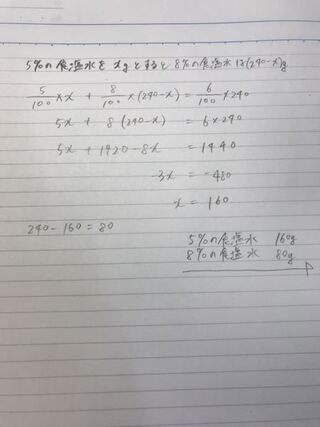 5%の食塩水をxgとすると8%の食塩水は(240-x)g
5/100×x + 8/100×(240-x) = 6/100×240
5x + 8(240-x) = 6×240
5x + 1920-8x = 1440
-3x = -480
x = 160
240-160=80
5%の食塩水 160g
8%の食塩水 80g